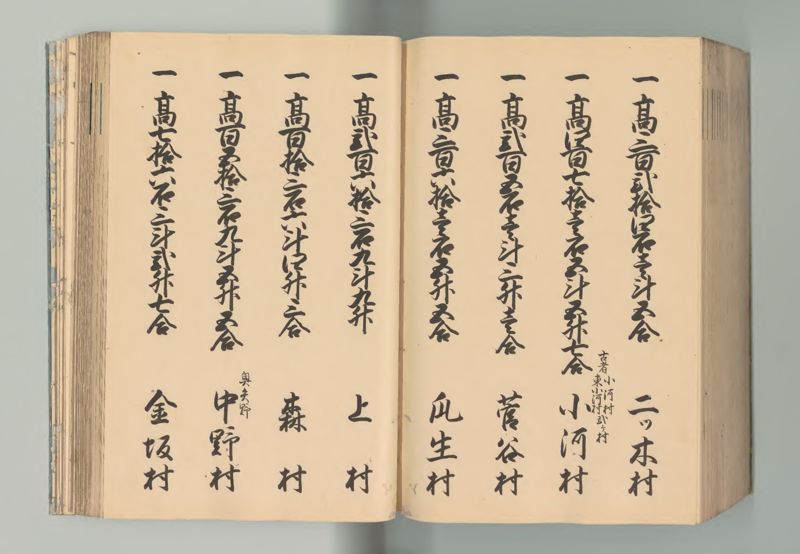 一 高三百弐拾四石壱斗五合 二ッ木村
一 高四百七拾壱石五斗五升七合 小河村
古者 小河村
東小河村 弐ヶ村
一 高弐百五石壱斗三升壱合 菅谷村
一 高三百六拾壱石五升五合 瓜生村
一 高弐百六拾三石九斗九升 上村
一 高百拾三石六斗四升三合 森村
一 高百五拾三石九斗五升五合 中野村
奥矢野
一 高七拾六石三斗弐升七合 金坂村